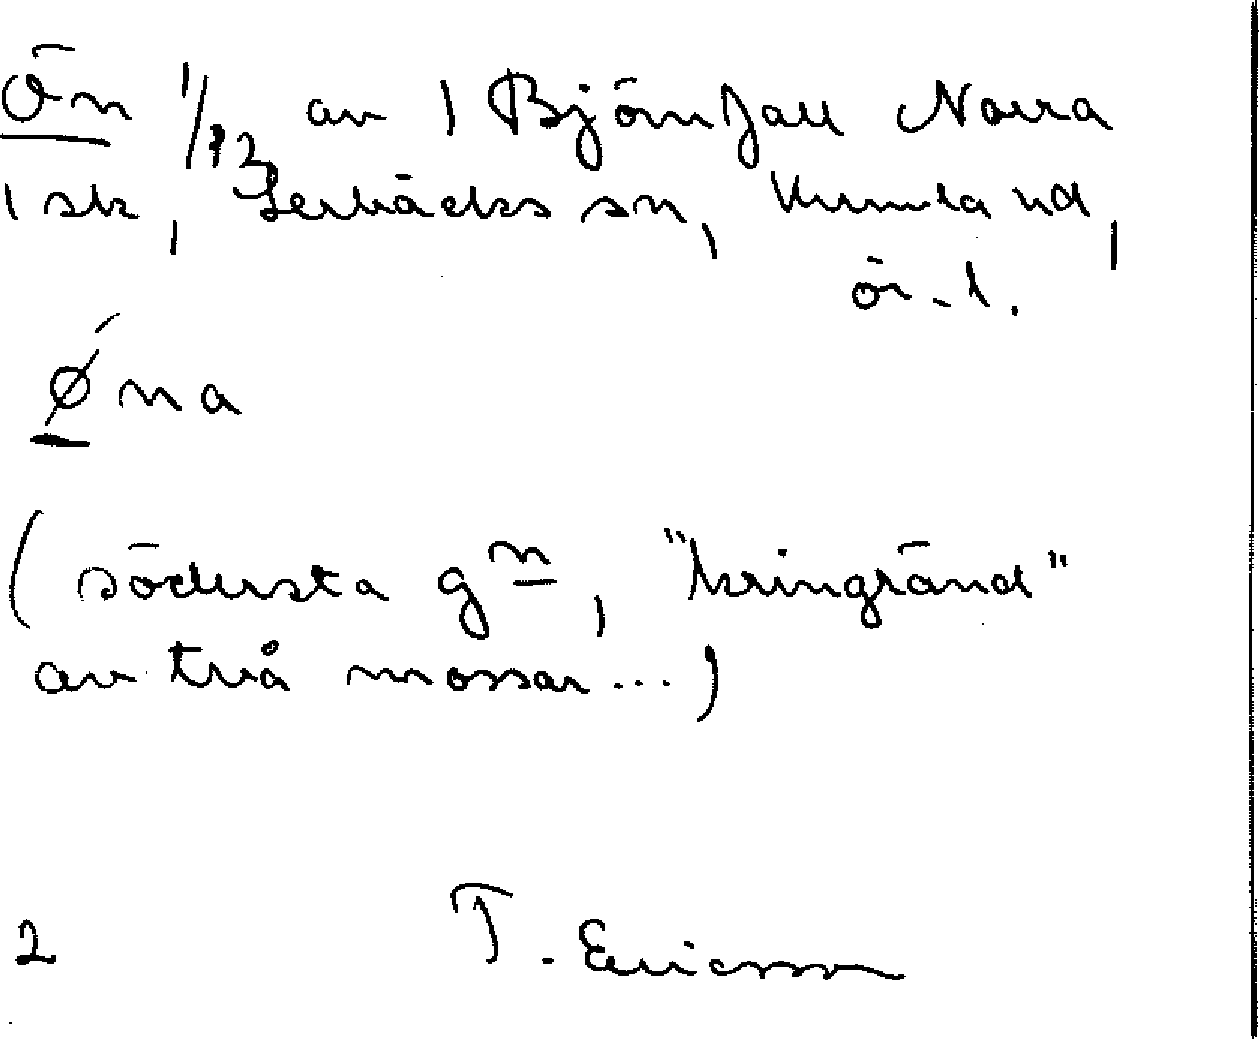 Ön 1/12 av 1 Björnfall Norra
1 sk, Lerbäcks sn, Kumla hd,
ör. l.
Øna
(södersta gn, "kringränd"
av två mossar...)
2 T. Ericsson